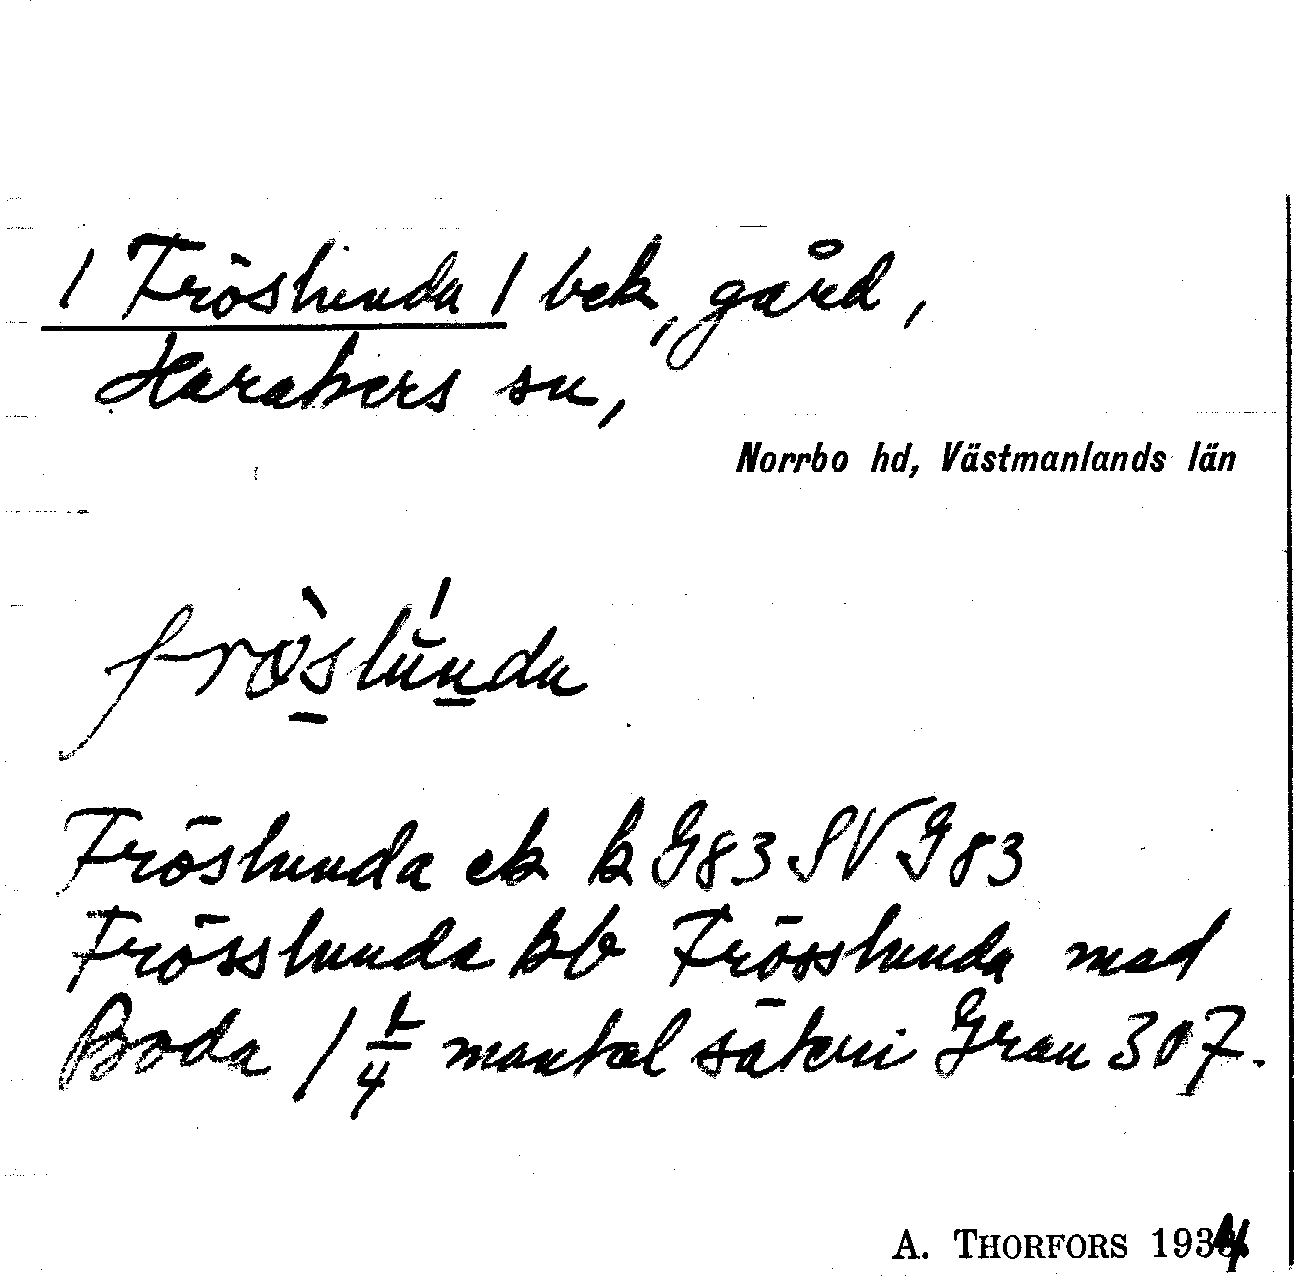 / Fröslunda / bek, gård,
Harakers sn,
Norrbo hd, Västmanlands län
fröslunda
Fröslunda ek k G83 SV G83
Frösslunda kb Frösslunda med
Boda 1 1/4 mantal säteri Grau 307.
A. THORFORS 1934.